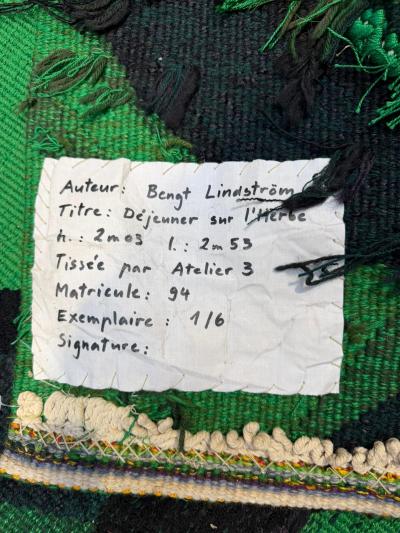 Auteur: Bengt Lindström
Titre: Déjeuner sur l'Herbe
h.: 2m03 l.: 2m53
Tissée par Atelier 3
Matricule: 94
Exemplaire: 1/6
Signature: